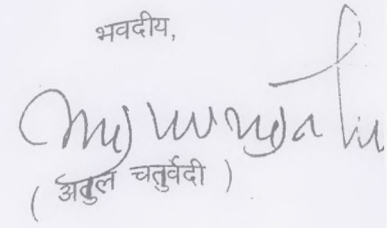 भवदीय,
( अतुल चतुर्वेदी )